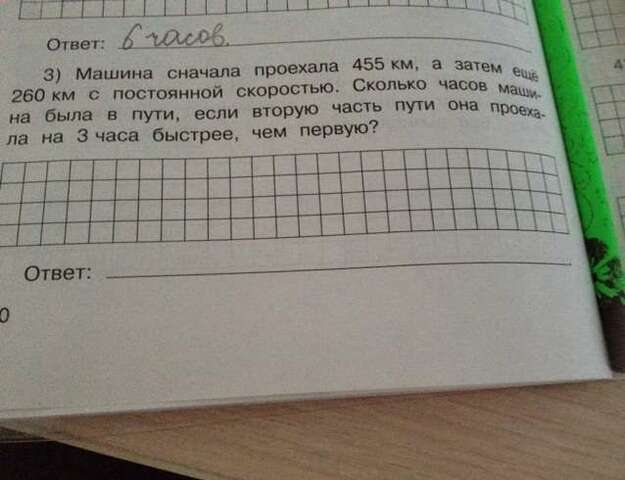 Ответ: 6 часов.
3) Машина сначала проехала 455 км, а затем ещё
260 км с постоянной скоростью. Сколько часов маши-
на была в пути, если вторую часть пути она проеха-
ла на 3 часа быстрее, чем первую?
Ответ:
0
4